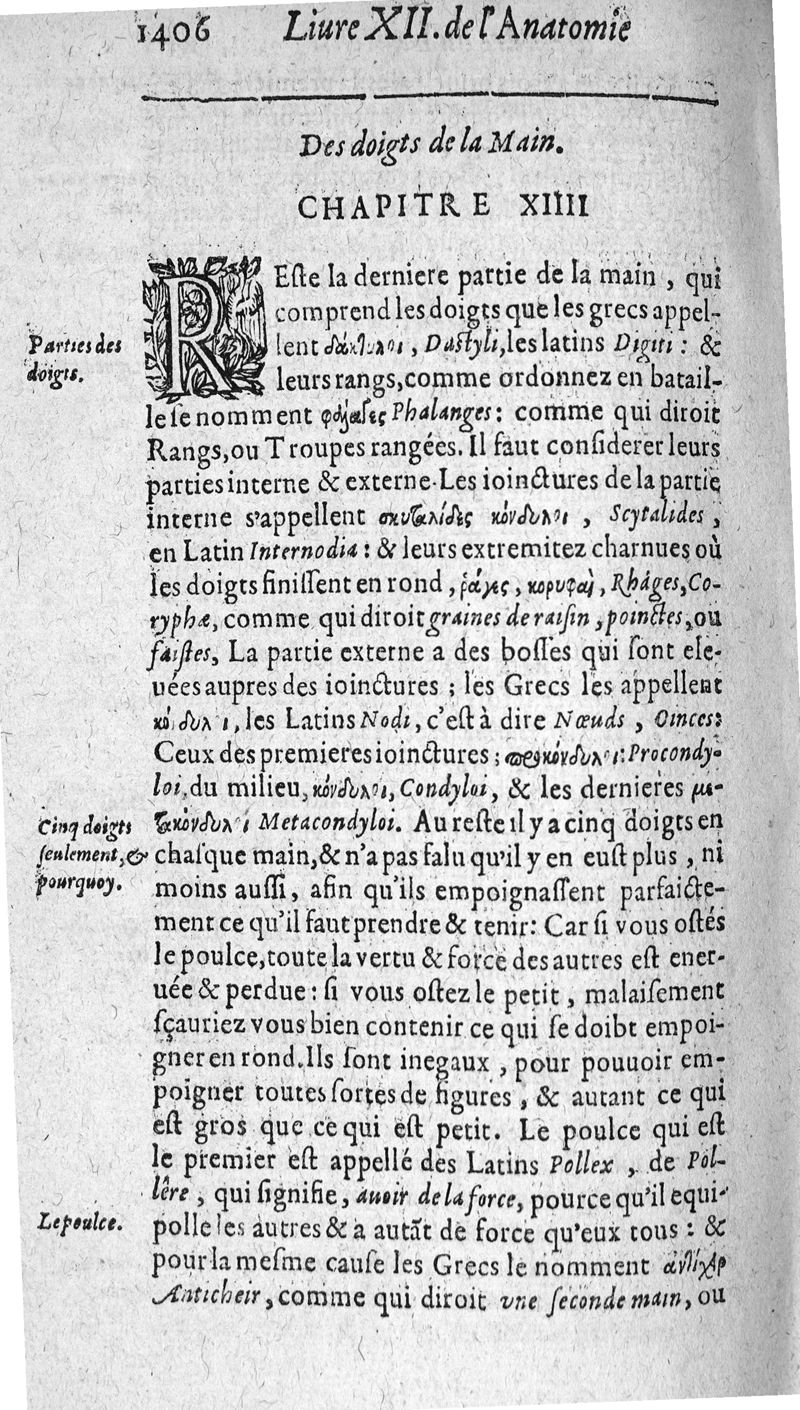 1406 Liure XII. de l'Anatomie
Des doigts de la Main.
CHAPITRE XIIII
REſte la derniere partie de la main, qui
comprend les doigts que les grecs appel-
lent δάκτυλοι, Dactyli, les latins Digiti: &
leurs rangs, comme ordonnez en batail-
le ſe nomment Phalanges: comme qui diroit
Rangs, ou Troupes rangées. Il faut conſiderer leurs
parties interne & externe. Les ioinctures de la partie
interne s'appellent σκυταλίδες κόνδυλοι, Scytalides,
en Latin Internodia: & leurs extremitez charnues où
les doigts finiſſent en rond, ῥάγες, κορυφαὶ, Rhâges, Co-
ryphæ, comme qui diroit graines de raiſin, poinctes, ou
faiſtes, La partie externe a des boſſes qui ſont ele-
uées aupres des ioinctures; les Grecs les appellent
κόνδυλοι, les Latins Nodi, c'eſt à dire Nœuds, Oinces:
Ceux des premieres ioinctures; προκόνδυλοι: Procondy-
loi, du milieu, κόνδυλοι, Condyloi, & les dernieres με-
τακόνδυλοι Metacondyloi. Au reſte il y a cinq doigts en
chaſque main, & n'a pas falu qu'il y en euſt plus, ni
moins auſſi, afin qu'ils empoignaſſent parfaicte-
ment ce qu'il faut prendre & tenir: Car ſi vous oſtés
le poulce, toute la vertu & force des autres eſt ener-
uée & perdue: ſi vous oſtez le petit, malaiſement
ſçauriez vous bien contenir ce qui ſe doibt empoi-
gner en rond. Ils ſont inegaux, pour pouuoir em-
poigner toutes ſortes de figures, & autant ce qui
eſt gros que ce qui eſt petit. Le poulce qui eſt
le premier eſt appellé des Latins Pollex, de Pol-
lêre, qui ſignifie, auoir de la force, pource qu'il equi-
polle les autres & a autãt de force qu'eux tous: &
pour la meſme cauſe les Grecs le nomment ἀντίχειρ
Anticheir, comme qui diroit vne ſeconde main, ou
Parties des
doigts.
Cinq doigts
ſeulement, &
pourquoy.
Le poulce.